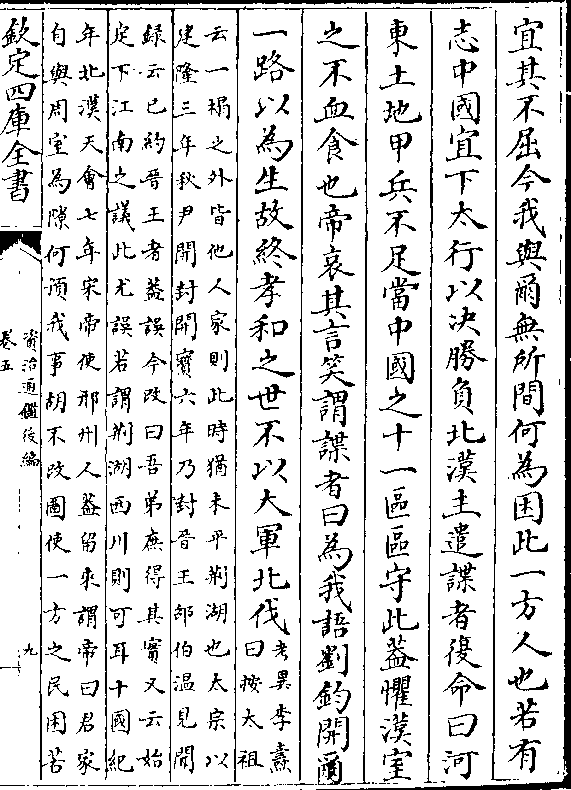 宜其不屈今我與爾無所間何為困此一方人也若有
志中國宜下太行以決勝負北漢主遣諜者復命曰河
東土地甲兵不足當中國之十一區區守此葢懼漢室
之不血食也帝哀其言笑謂諜者曰為我語劉鈞開爾
一路以為生故終孝和之世不以大軍北伐
考異李燾
曰按太祖
云一榻之外皆他人家則此時猶未平荆湖也太宗以
建隆三年秋尹開封開寶六年乃封晉王邵伯温見聞
録云已約晉王者葢誤今改曰吾弟庶得其實又云始
定下江南之議此尤誤若謂荆湖西川則可耳十國紀
年北漢天會七年宋帝使邢州人葢留來謂帝曰君家
自與周室為隙何預我事胡不改圖使一方之民困苦
欽定四庫全書
資治通鑑後編
卷五
九